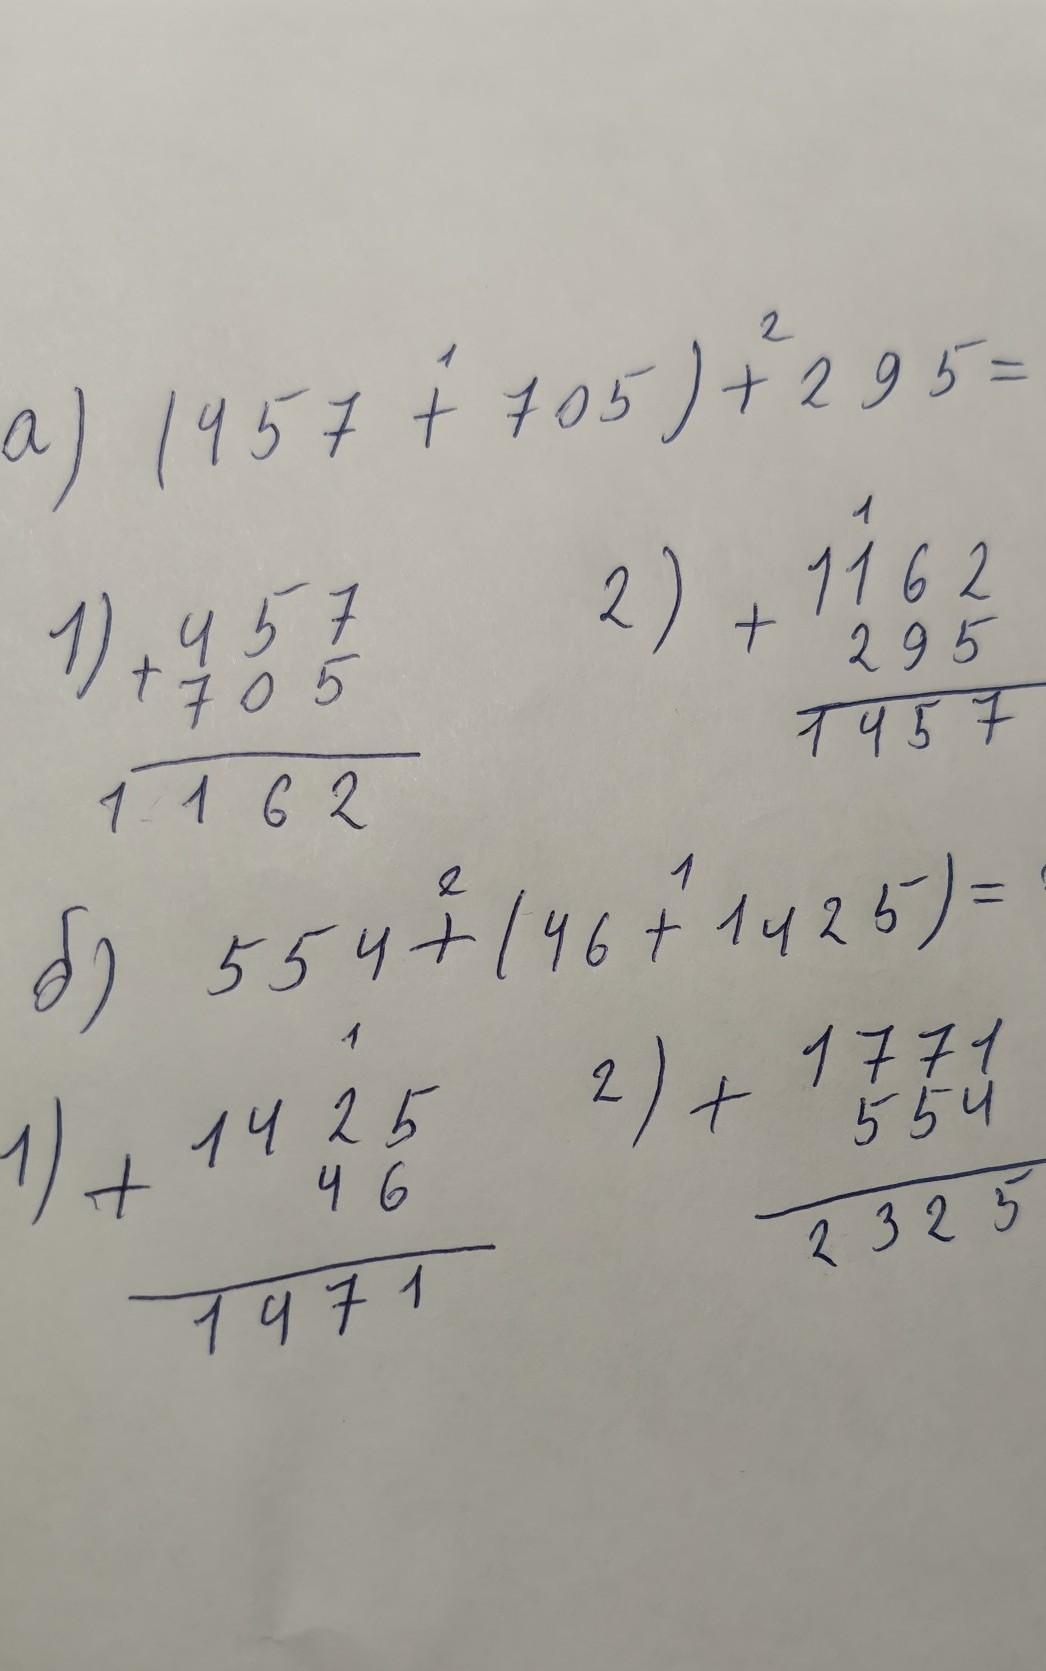 1 2
а) (457 + 705) + 295 =
1) + 457
705
1162
2) + 1
1162
295
1457
2 1
б) 554 + (46 + 1425) =
1) + 1
1425
46
1471
2) + 1771
554
2325